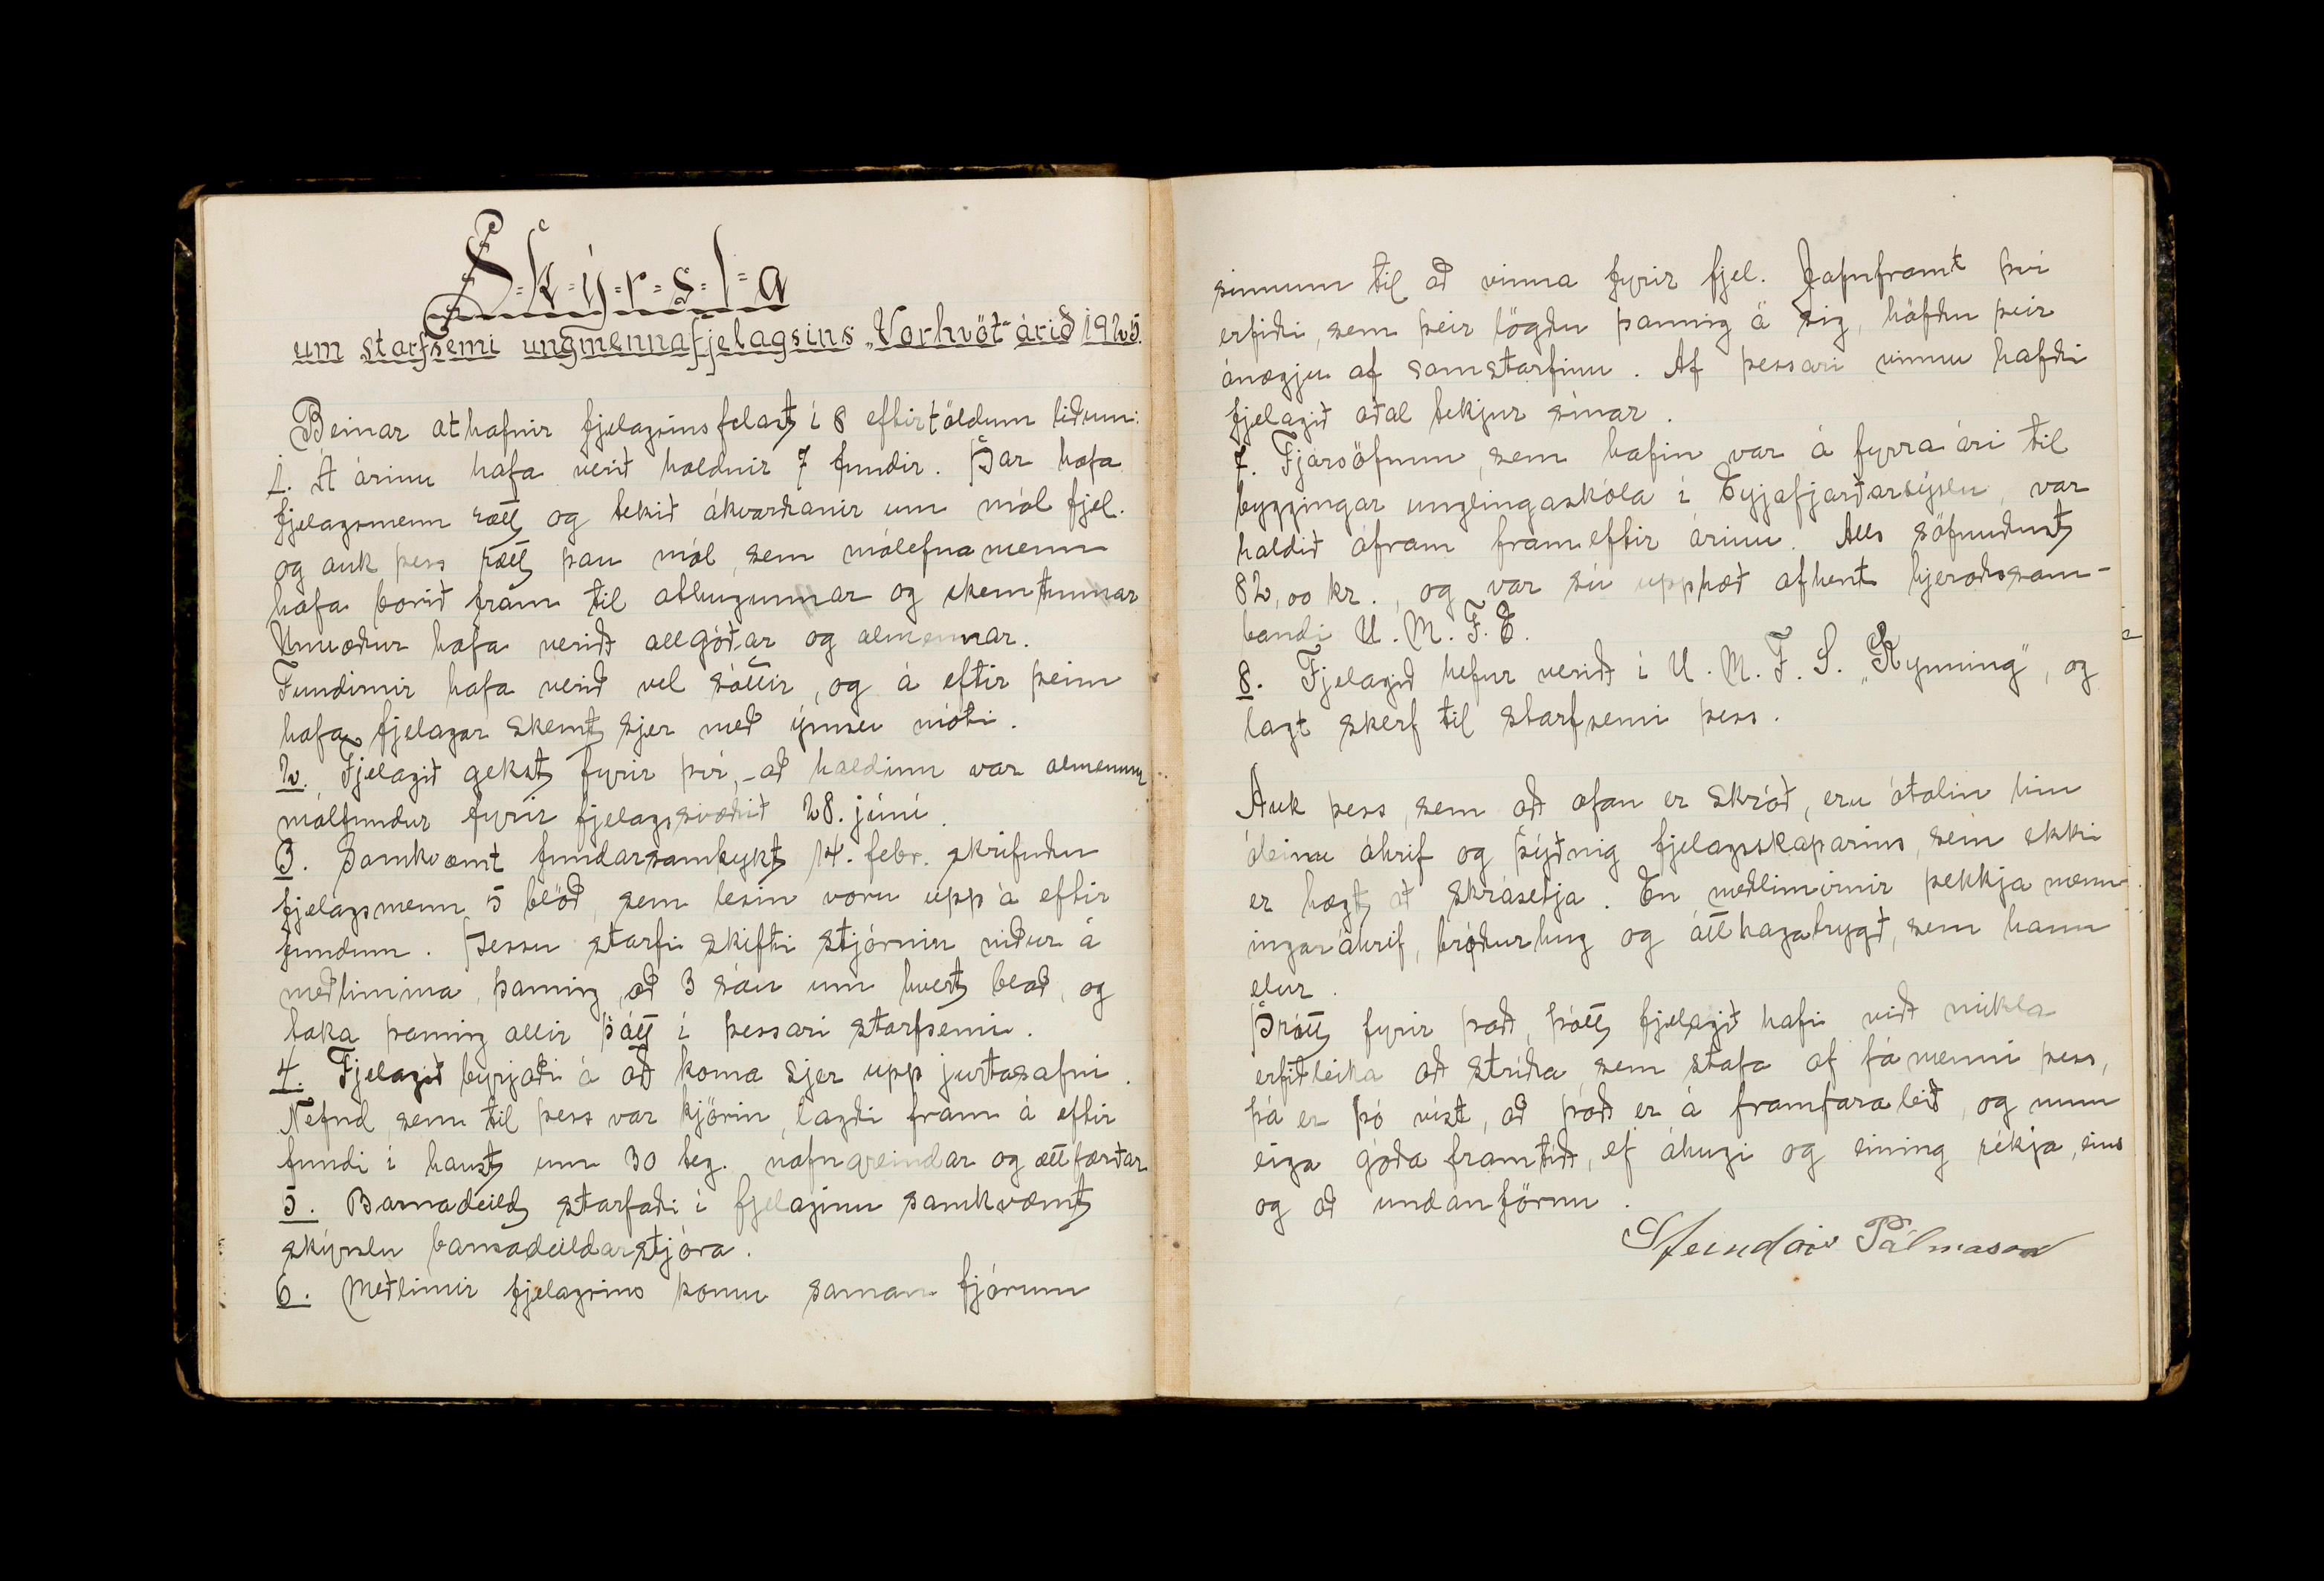 S-k-ý-r-s-l-a
um starfsemi ungmennafjelagsins „Vorhvöt" árið 1925.
Beinar athafnir fjelagsins felast í 8 eftirtöldum liðum:
1. Á árinu hafa verið haldnir 7 fundir. Þar hafa
fjelagsmenn rætt og tekið ákvarðanir um mál fjel.
og auk þess rætt þau mál, sem málefnamenn
hafa borið fram til athugunnar og skemtunnar
Umræður hafa verið allgóðar og almennar.
Fundirnir hafa verið vel sóttir, og á eftir þeim
hafa fjelagar skemt sjer með ýmsu móti.
2. Fjelagið gekst fyrir því, að haldinn var almennur
málfundur fyrir fjelagssvæðið 28. júní.
3. Samkvæmt fundarsamþykt 14. febr. skrifuðu
fjelagsmenn 5 blöð, sem lesin voru upp á eftir
fundum. Þessu starfi skifti stjórnin niður á
meðlimina, þannig að 3 sáu um hvert blað, og
taka þannig allir þátt í þessari starfsemi.
4. Fjelagið byrjaði á að koma sjer upp jurtasafni.
Nefnd, sem til þess var kjörin, lagði fram á eftir
fundi í haust um 30 teg. nafngreindar og ættfærðar
5. Barnadeild starfaði í fjelaginu samkvæmt
skýrslu barnadeildarstjóra.
6. Meðlimir fjelagsins komu saman fjórum
sinnum til að vinna fyrir fjel. Jafnframt því
erfiði, sem þeir lögðu þannig á sig, höfðu þeir
ánægju af samstarfinu. Af þessari vinnu hafði
fjelagið aðal tekjur sínar.
7. Fjársöfnun, sem hafin var á fyrra ári til
byggingar unglingaskóla í Eyjafjarðarsýslu, var
haldið áfram fram eftir árinu. Alls söfnuðust
82,00 kr., og var sú upphæð afhent hjeraðssam-
bandi U. M. F. E.
8. Fjelagið hefur verið í U. M. F. S. „Kynning", og
lagt skerf til starfsemi þess.
Auk þess, sem að ofan er skráð, eru ótalin hin
óbeinu áhrif og þýðnig fjelagsskaparins, sem ekki
er hægt að skrásetja. En meðlimirnir þekkja menn-
ingaráhrif, bróðurhug og átthagatrygð, sem hann
elur.
Þrátt fyrir það, þótt fjelagið hafi við mikla
erfiðleika að stríða, sem stafa af fámenni þess,
þá er þó víst, að það er á framfaraleið, og mun
eiga góða framtíð, ef áhugi og eining ríkja, eins
og að undanförnu.
Steindór Pálmason